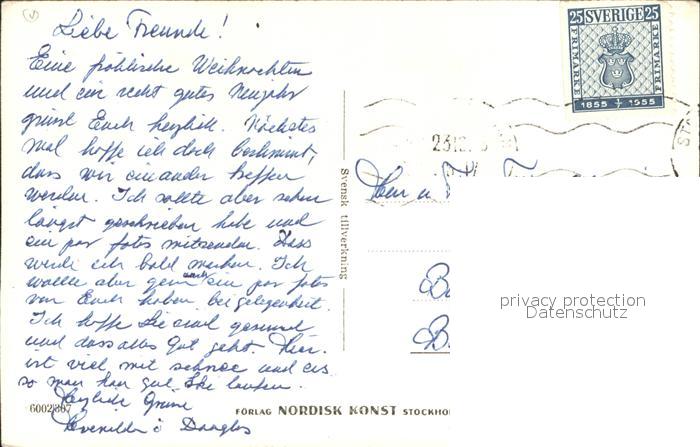 Liebe Freunde!
Eine fröhliche Weihnachten
und ein recht gutes Neujahr
Euch herzlich. Nächstes
mal hoffe ich doch bestimmt,
dass wir einander treffen
werden. Ich sollte aber schon
längst geschrieben habe und
ein par fotos mitsenden. Dass
werde ich bald machen. Ich
wollte aber gern auch ein par fotos
von Euch haben bei gelegenheit.
Ich hoffe Sie sind gesund
und dass alles Gut geht. Hier
ist viel mit schnee und eis
so man kan gut Ski laufen.
Herzliche Grüsse
Douglas
6002
25 SVERIGE 25
FRIMÄRKE
FRIMÄRKE
1855 1955
Svensk tillverkning
Herr u.
privacy protection
Datenschutz
FÖRLAG NORDISK KONST STOCKHO